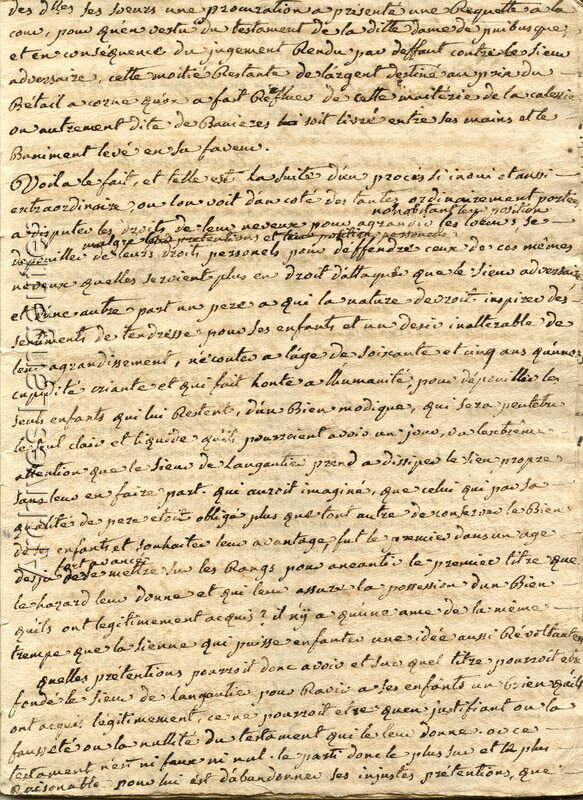 des dttes ses soeurs une procuration a presenté une Requette a la
cour, pour qu'en vertu du testament de la ditte dame de puibusque,
et en consequence du jugement Rendu par deffaut contre le sieur
adversaire, cette moitié Restante de l'argent destiné au prix du
Betail a corne qu'on a fait de cette maiterie de la
ou autrement dite de Banieres soit livré entre ses mains et le
Baniment levé en sa faveur.
Voila le fait, et telle est la suite d'un procés si inoui et aussi
extraordinaire, ou l'on voit d'un coté des tantes ordinairement portées
nonobstant leur position
a disputer les droits de leur neveux pour agrandir les leurs se
malgre leurs pretentions et leur position personele
depouiller de leurs droits personels pour deffendre ceux de ces mêmes
neveux quelles seroient plus en droit d'attaquer que le sieur adversaire
et d'une autre part un pere a qui la nature devroit inspirer des
sentiments de tendresse pour ses enfants et un desir inalterable de
leur agrandissement, n'écouter a l'age de soixante et cinq ans qu'une
cupidité criante et qui fait honte a l'humanité, pour depouiller les
seuls enfants qui lui Restent, d'un Bien modique, qui sera peutetre
le seul clair et liquide qu'ils pourroient avoir un jour, va l'extrême
attention que le sieur de Langautier prend a dissiper le sien propre
sans leur en faire part. qui auroit imaginé, que celui qui par sa
qualité de pere etoit obligé plus que tout autre de conserver le Bien
de ses enfants et souhaiter leur avantage, fut le premier dans un age
fort avancé
desja de se mettre sur les Rangs pour aneantir le premier titre que
le hazard leur donne et qui leur assure la possession d'un Bien
qu'ils ont legitimement acquis? il n'y a qu'une ame de la même
trempe que la sienne qui puisse enfanter une idée aussi Révoltante
quelles prétentions pourroit donc avoir et sur quel titre pourroit etre
fondé le sieur de Langautier pour Ravir a ses enfants un bien qu'ils
ont acquis légitimement, ce ne pourroit etre qu'en justifiant ou la
fausseté ou la nullité du testament qui le leur donne. or ce
testament n'est ni faux ni nul. le parti donc le plus sur et le plus
raisonable pour lui est d'abandonner ses injustes prétentions, que